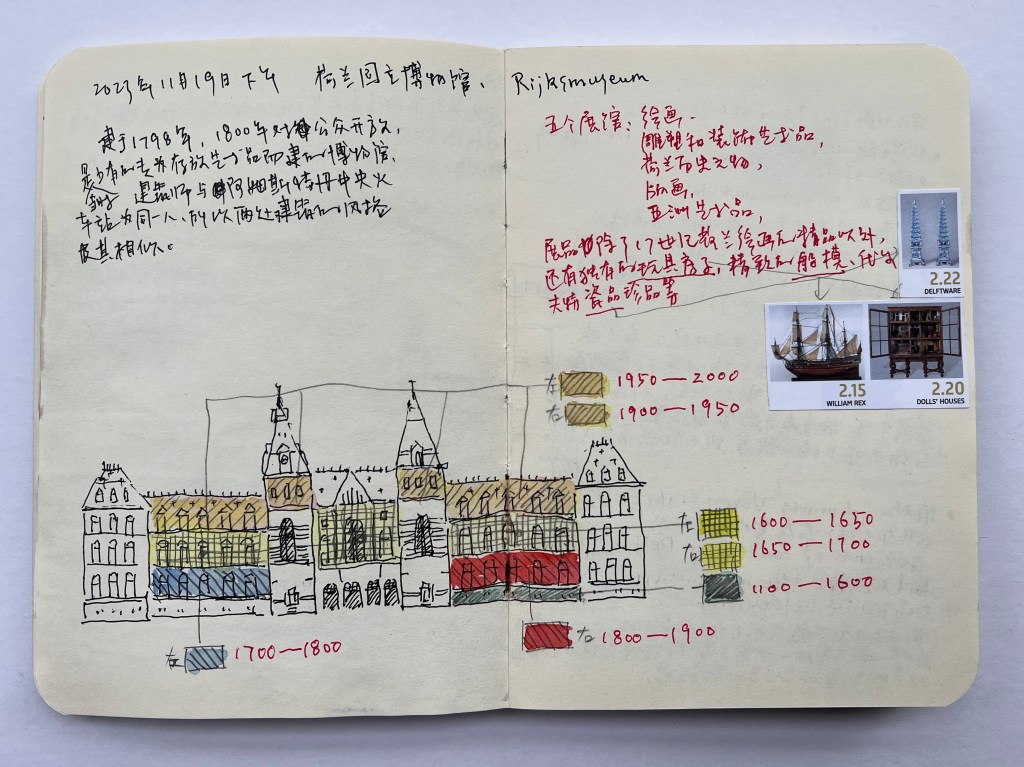 2023年11月19日下午 荷兰国立博物馆、 Rijksmuseum
建于1798年，1800年对公众开放，
是 为存放艺术品而建的博物馆、
建筑师与阿姆斯特丹中央火
车站为同一人，所以两处建筑的风格
极其相似。
五个展馆：绘画、
雕塑和装饰艺术品，
荷兰历史文物，
版画，
亚洲艺术品，
展品除了17世纪荷兰绘画的精品以外，
还有独有的玩具房子，精致的船模、代尔
夫特瓷品珍品等
2.22
DELFTWARE
2.15
WILLIAM REX
2.20
DOLLS' HOUSES
左 1950—2000
右 1900—1950
左 1600—1650
右 1650—1700
1100—1600
左 1700—1800
右 1800—1900